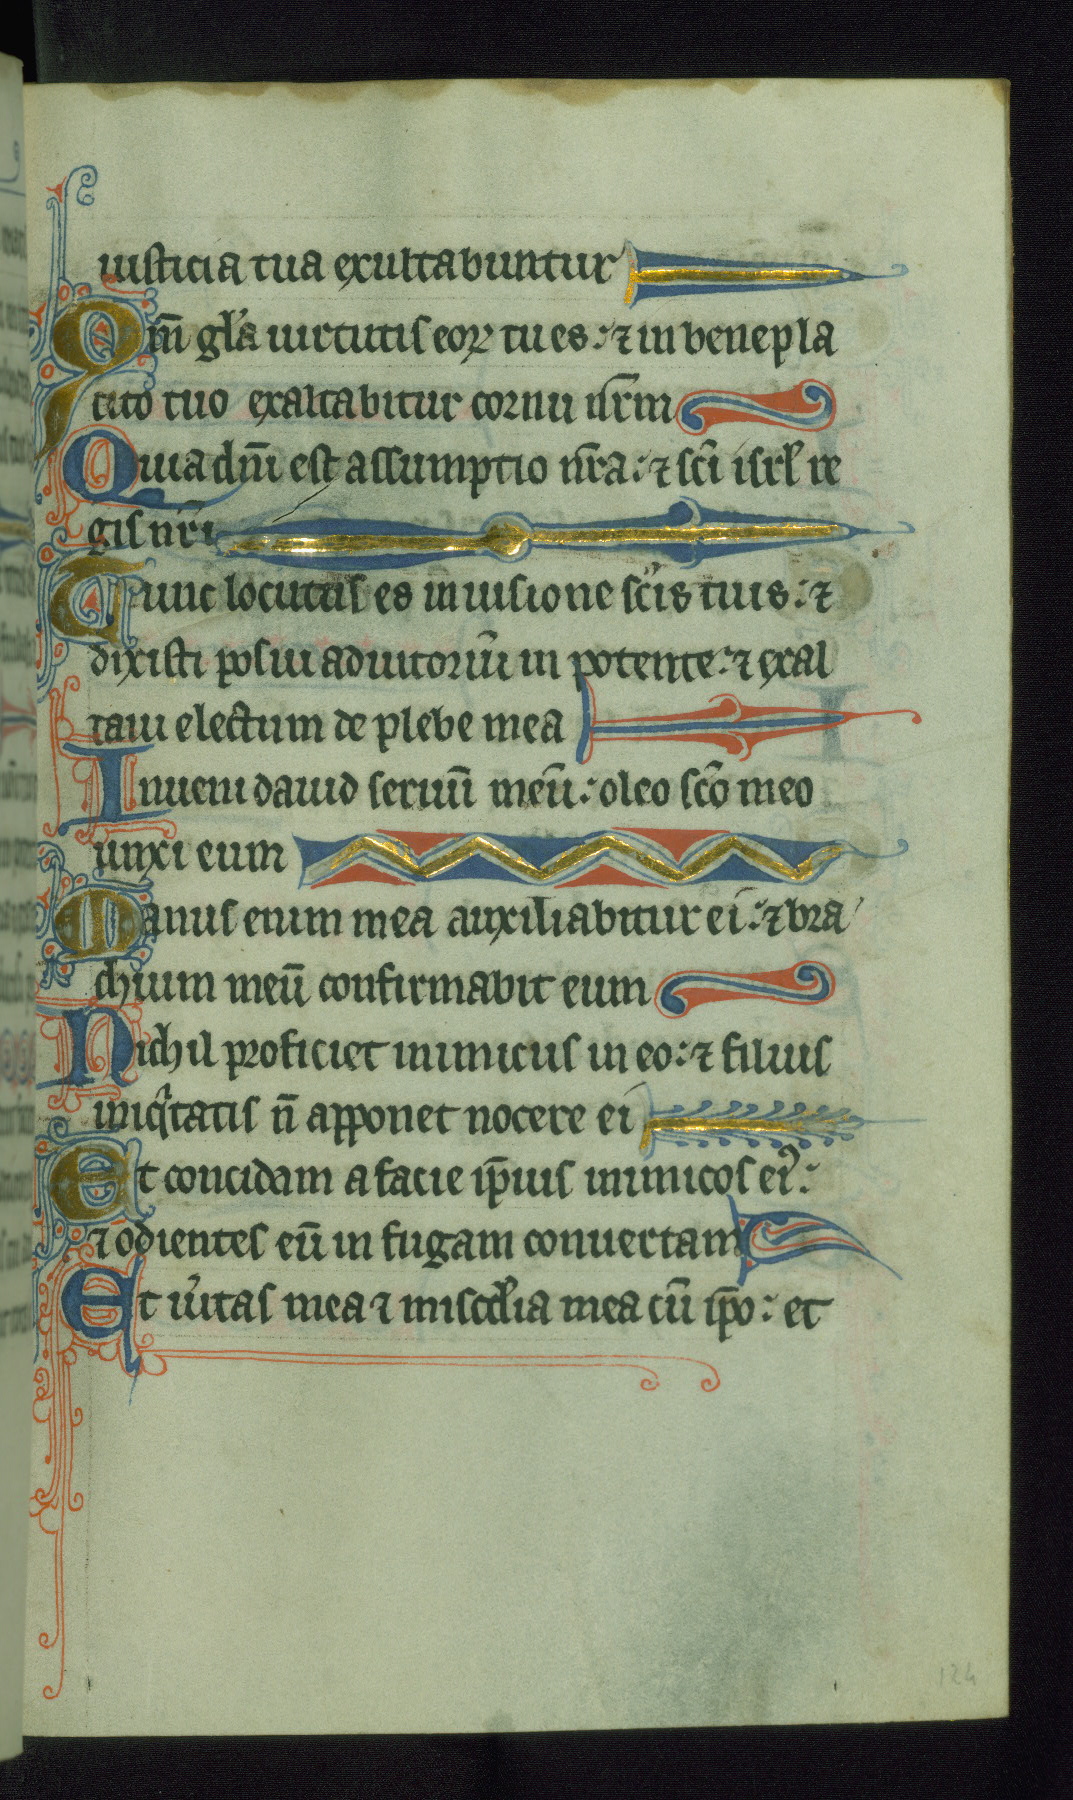 iusticia tua exultabuntur
Qm̄ gl̃a uirtutis eoꝝ tu es: ⁊ in benepla
cito tuo exaltabitur cornu nr̄m
Quia dn̄i est assumptio nr̄a: ⁊ sc̄i isrl̃ re
gis nr̄i
Tunc locutus es in uisione sc̄is tuis: ⁊
dixisti posui adiutoriū in potente: ⁊ exal
taui electum de plebe mea
Inueni dauid seruū meū: oleo sc̄o meo
unxi eum
Manus enim mea auxiliabitur ei: ⁊ bra
chium meū confirmabit eum
Nichil proficiet inimicus in eo: ⁊ filius
iniqͥtatis n̄ apponet nocere ei
Et concidam a facie ip̄ius inimicos eiꝰ:
⁊ odientes eū in fugam conuertam
Et ũitas mea ⁊ miscd̃ia mea cū ip̄o: et
124